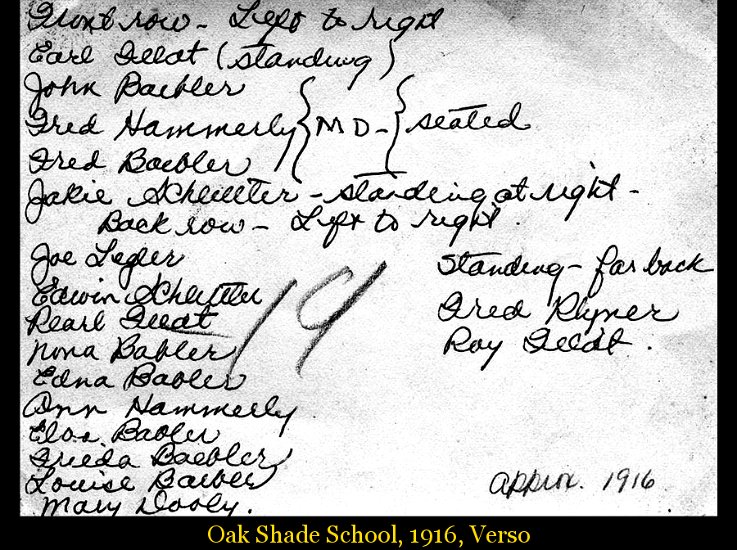 Front row - Left to right
Earl (standing)
John Baebler
Fred Hammerly } MD - { seated
Fred Baebler
Jakie - standing at right -
Back row - Left to right.
Joe Legler
Edwin
Pearl
Nona Babler
Edna Babler
Ann Hammerly
Babler
Frieda Baebler
Louise Baebler
Mary Dooly.
19
Standing - far back
Fred Rhyner
Roy
approx. 1916
Oak Shade School, 1916, Verso